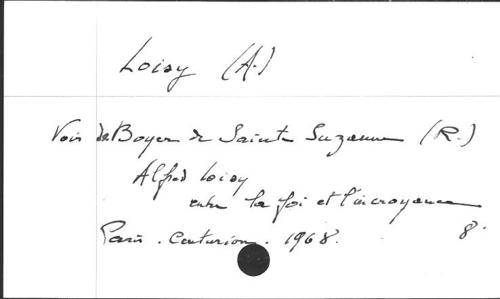 Loisy (A.)
Voir de Boyer de Sainte Suzanne (R.)
Alfred Loisy
entre la foi et l'incroyance
Paris. Centurion. 1968. 8°